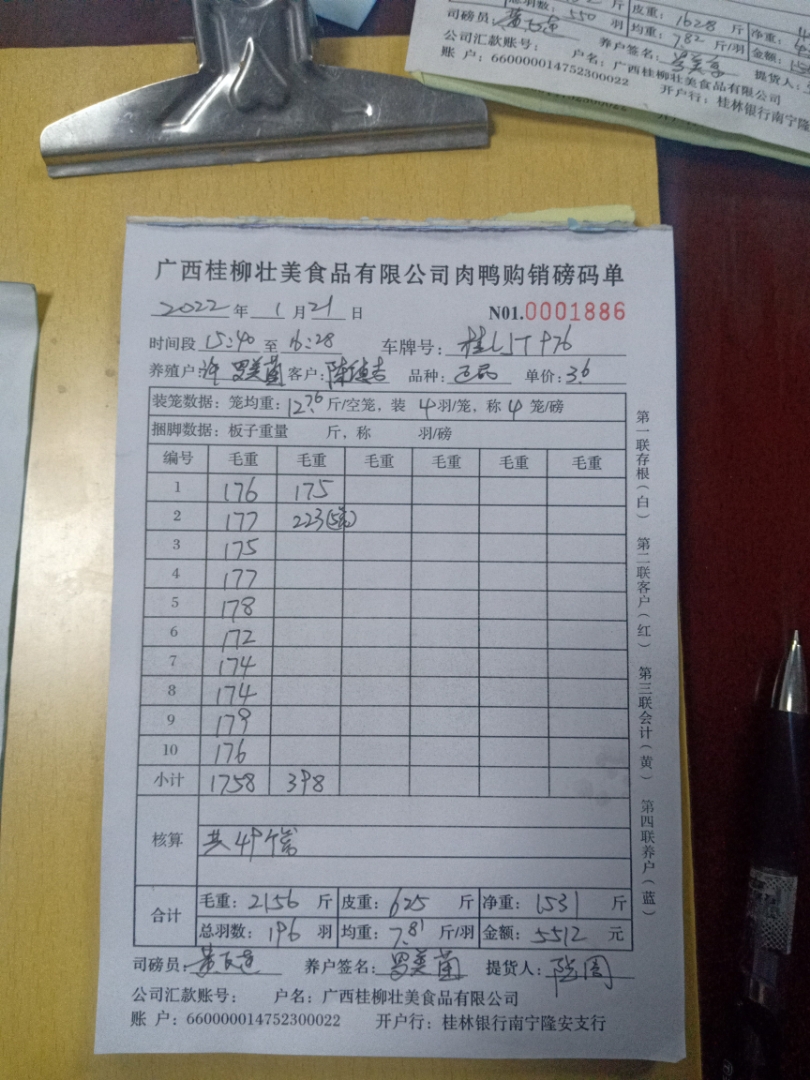 总羽数：550 羽 均重：7.82 斤/羽 金额：
皮重：1628 斤 净重：
司磅员： 养户签名： 提货人：
公司汇款账号： 户名：广西桂柳壮美食品有限公司
账 户：660000014752300022 开户行：桂林银行南宁隆
广西桂柳壮美食品有限公司肉鸭购销磅码单
2022 年 1 月 21 日 N01.0001886
时间段 15:40 至 16:28 车牌号：
养殖户： 罗美菌 客户：陈德吉 品种：正品 单价：3.6
装笼数据：笼均重：12.76 斤/空笼，装 4 羽/笼，称 4 笼/磅
捆脚数据：板子重量 斤，称 羽/磅
编号 毛重 毛重 毛重 毛重 毛重 毛重
1 176 175
2 177 223(5笼)
3 175
4 177
5 178
6 172
7 174
8 174
9 179
10 176
小计 1758 398
核算 共49个笼
合计 毛重：2156 斤 皮重：625 斤 净重：1531 斤
总羽数：196 羽 均重：7.81 斤/羽 金额：5512 元
司磅员： 养户签名：罗美菌 提货人：
公司汇款账号： 户名：广西桂柳壮美食品有限公司
账 户：660000014752300022 开户行：桂林银行南宁隆安支行
第一联存根（白） 第二联客户（红） 第三联会计（黄） 第四联养户（蓝）